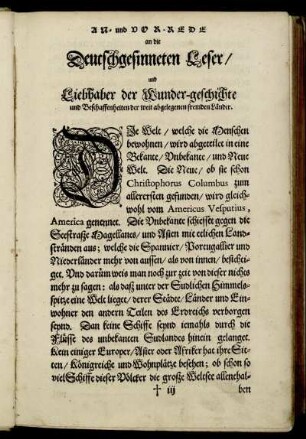 AN- und VOR-REDE
an die
Deutschgesinneten Leser/
und
Liebhaber der Wunder-geschichte
und Beschaffenheiten der weit abgelegenen fremden Länder.
DIe Welt/ welche die Menschen
bewohnen/ wird abgeteilet in eine
Bekante/ Unbekante/ und Neue
Welt. Die Neue/ ob sie schon
Christophorus Columbus zum
allerersten gefunden/ wird gleich-
wohl vom Americus Vesputius,
America genennet. Die Unbekante schiesset gegen die
Seestraße Magellanes/ und Asien mit etlichen Land-
stränden aus; welche die Spannier/ Portugallier und
Niederländer mehr von aussen/ als von innen/ bestochei-
get. Und darüm weis man noch zur zeit von dieser nichts
mehr zu sagen: als daß unter der Sudlichen Himmels-
spitze eine Welt lieget/ derer Städte/ Länder und Ein-
wohner den andern Teilen des Erdreichs verborgen
seynd. Dan keine Schiffe seynd iemahls durch die
Flüsse des unbekanten Sudlandes hinein gelanget.
Kein einiger Europer/ Asier oder Afriker hat ihre Sit-
ten/ Königreiche und Wohnplätze besehen; ob schon so
viel Schiffe dieser Völcker die große Weltsee allenthal-
† iij ben